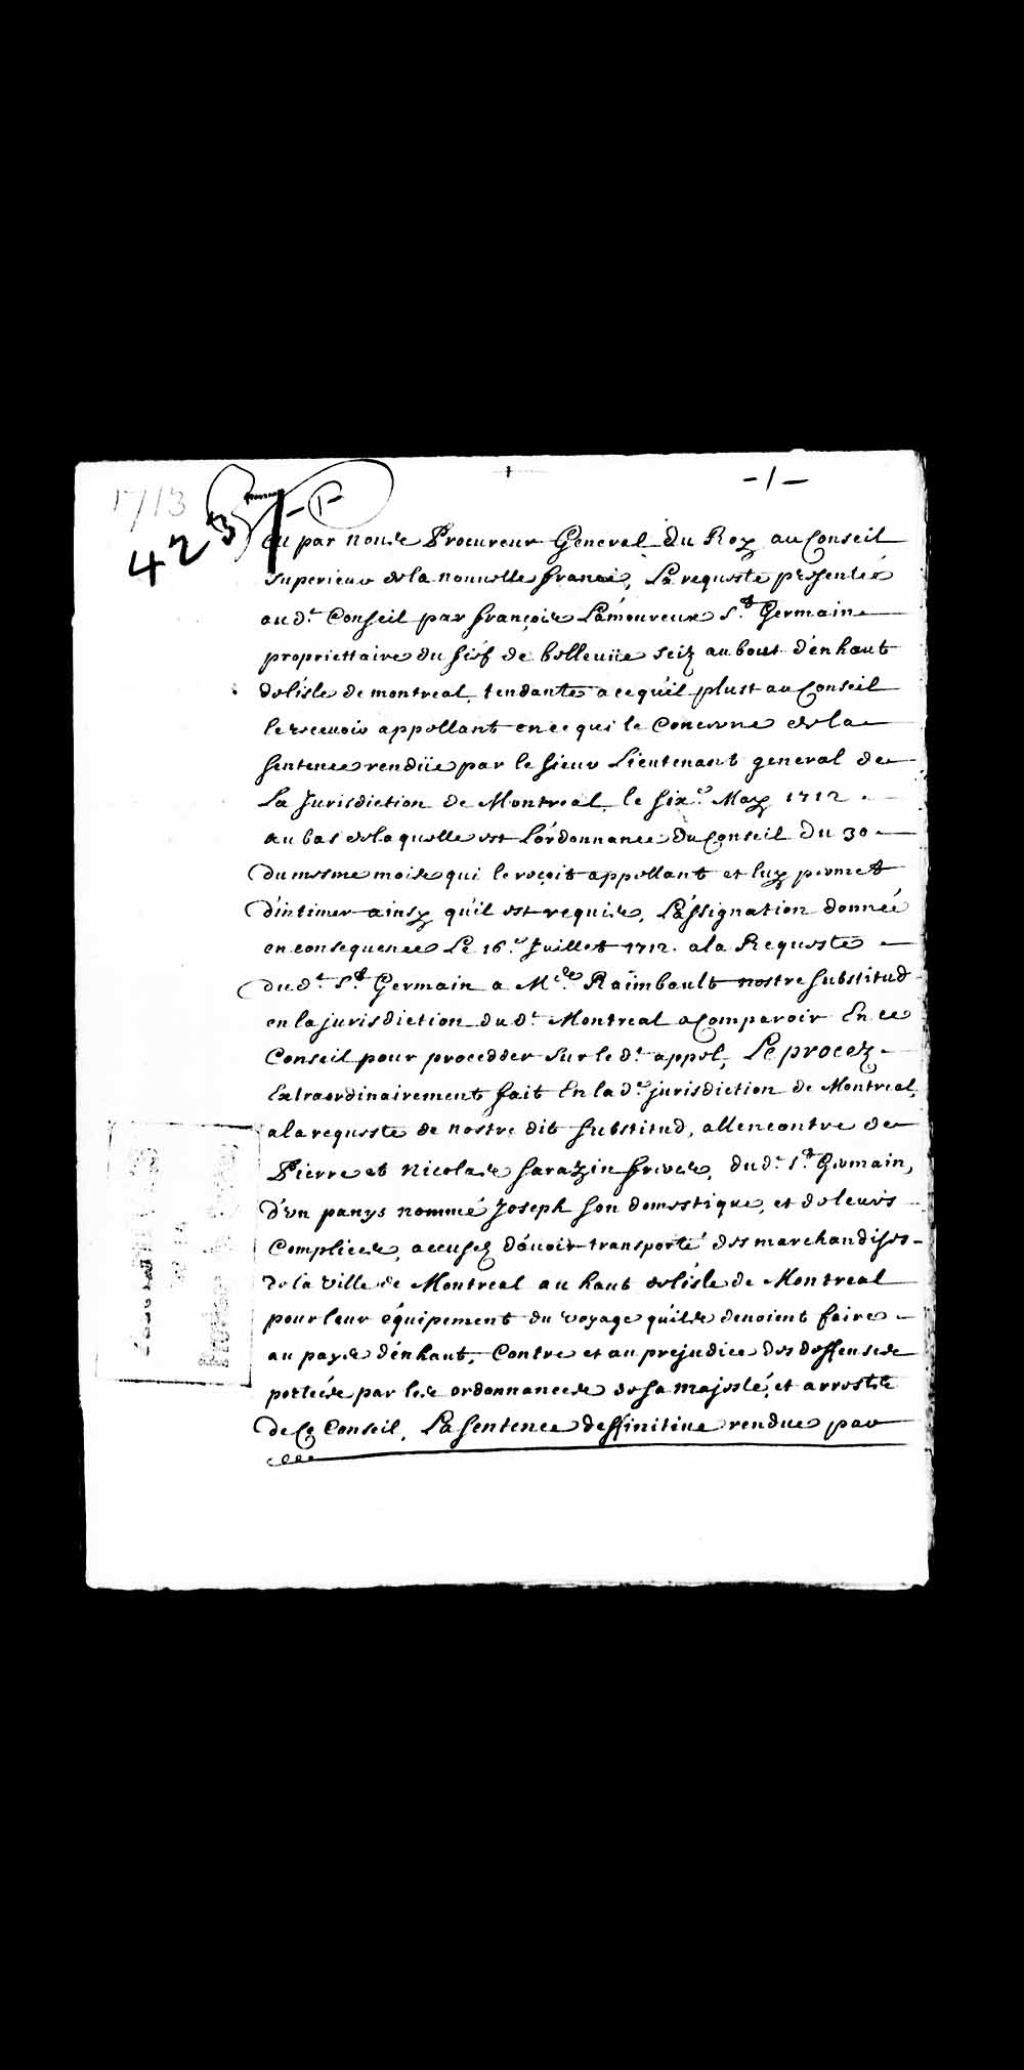 - 1 -
1713
423 1-
Veu par nous Procureur General du Roy au Conseil
superieur de la nouvelle france, La requeste presentée
au d.t Conseil par françois Lamoureux S.t Germain
propriettaire du fief de bellevüe seiz au bout d'en haut
de l'isle de montreal, tendante a ce qu'il plust au Conseil
le recevoir appellant en ce qui le Concerne de la
sentence rendüe par le sieur Lieutenant general de
La Jurisdiction de Montreal, le six.e May 1712.
au bas de laquelle est L'ordonnance du Conseil du 30
du mesme mois qui le reçoit appellant et luy permet
d'intimer ainsy qu'il est requis, L'assignation donneé
en consequence Le 16.e Juillet 1712. a la Requeste
du d.t S.t Germain a M.e Raimbault nostre substitud
en la jurisdiction du d.t Montreal a Comparoir En ce
Conseil pour procedder sur le d.t appel, Le procez
Extraordinairement fait En la d.e jurisdiction de Montreal,
a la requeste de nostre dit substitud, allencontre de
Pierre et Nicolas sarazin freres, du d.t S.t Germain,
d'un panys nommé Joseph son domestique, et de leurs
Complices, accusez d'avoir transporté des marchandises
de la ville de Montreal au haut de l'isle de Montreal
pour leur équipement du voyage qu'ils devoient faire
au pays d'en haut, Contre et au prejudice des deffenses
porteés par les ordonnances de sa majesté, et arrests
de Ce Conseil, La sentence deffinitive rendue par